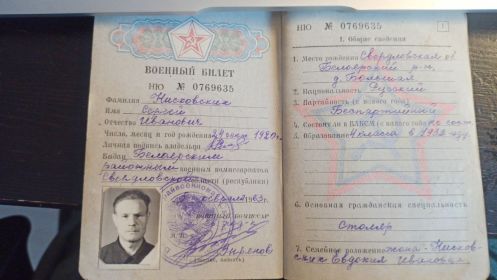 ВОЕННЫЙ БИЛЕТ
НЮ № 0769635
Фамилия Нисковских
Имя Сергей
Отчество Иванович
Число, месяц и год рождения 1920 г.
Личная подпись владельца
Выдан Белоярским
районным военным комиссариатом
Свердловской области (республики)
февраля 1963 г.
НЮ № 0769635 1
I. Общие сведения
1. Место рождения Свердловская об
Белоярский р-н
д. Большая
2. Национальность Русский
3. Партийность (с какого года)
Беспартийный
4. Состоял ли в ВЛКСМ (с какого года) не сост
5. Образование 4 класса в 1932 году
6. Основная гражданская специальность
Столяр
7. Семейное положение жона - Нисков-
ских Евдокия Ивановна